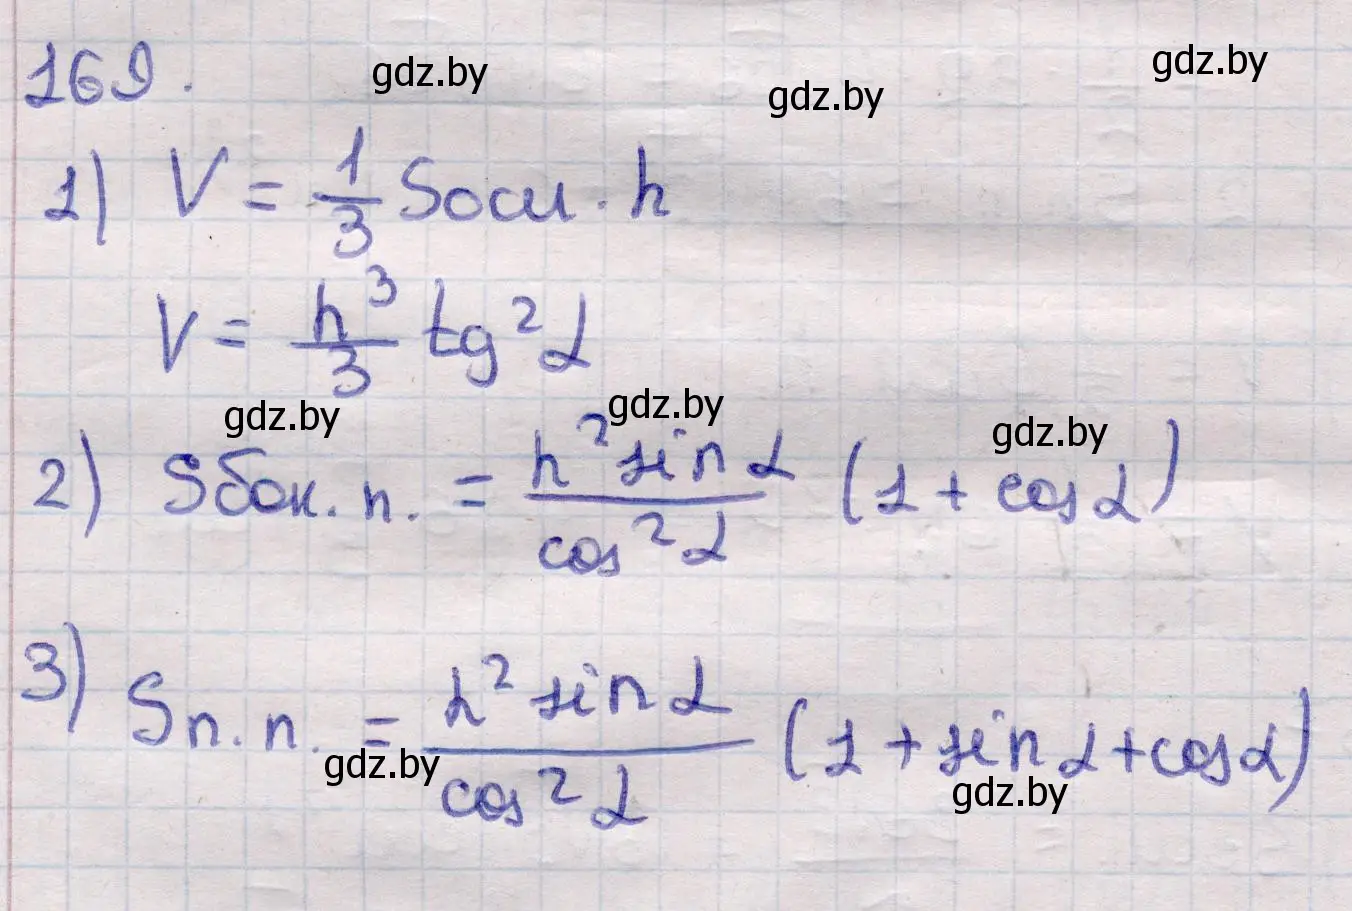 169.
gdz.by gdz.by gdz.by
1) V = 1/3 Sосн · h
V = h³/3 tg²α
gdz.by gdz.by gdz.by
2) Sбок. п. = h² sin α / cos² α (1 + cos α)
3) Sп. п. = h² sin α / cos² α (1 + sin α + cos α)
gdz.by gdz.by